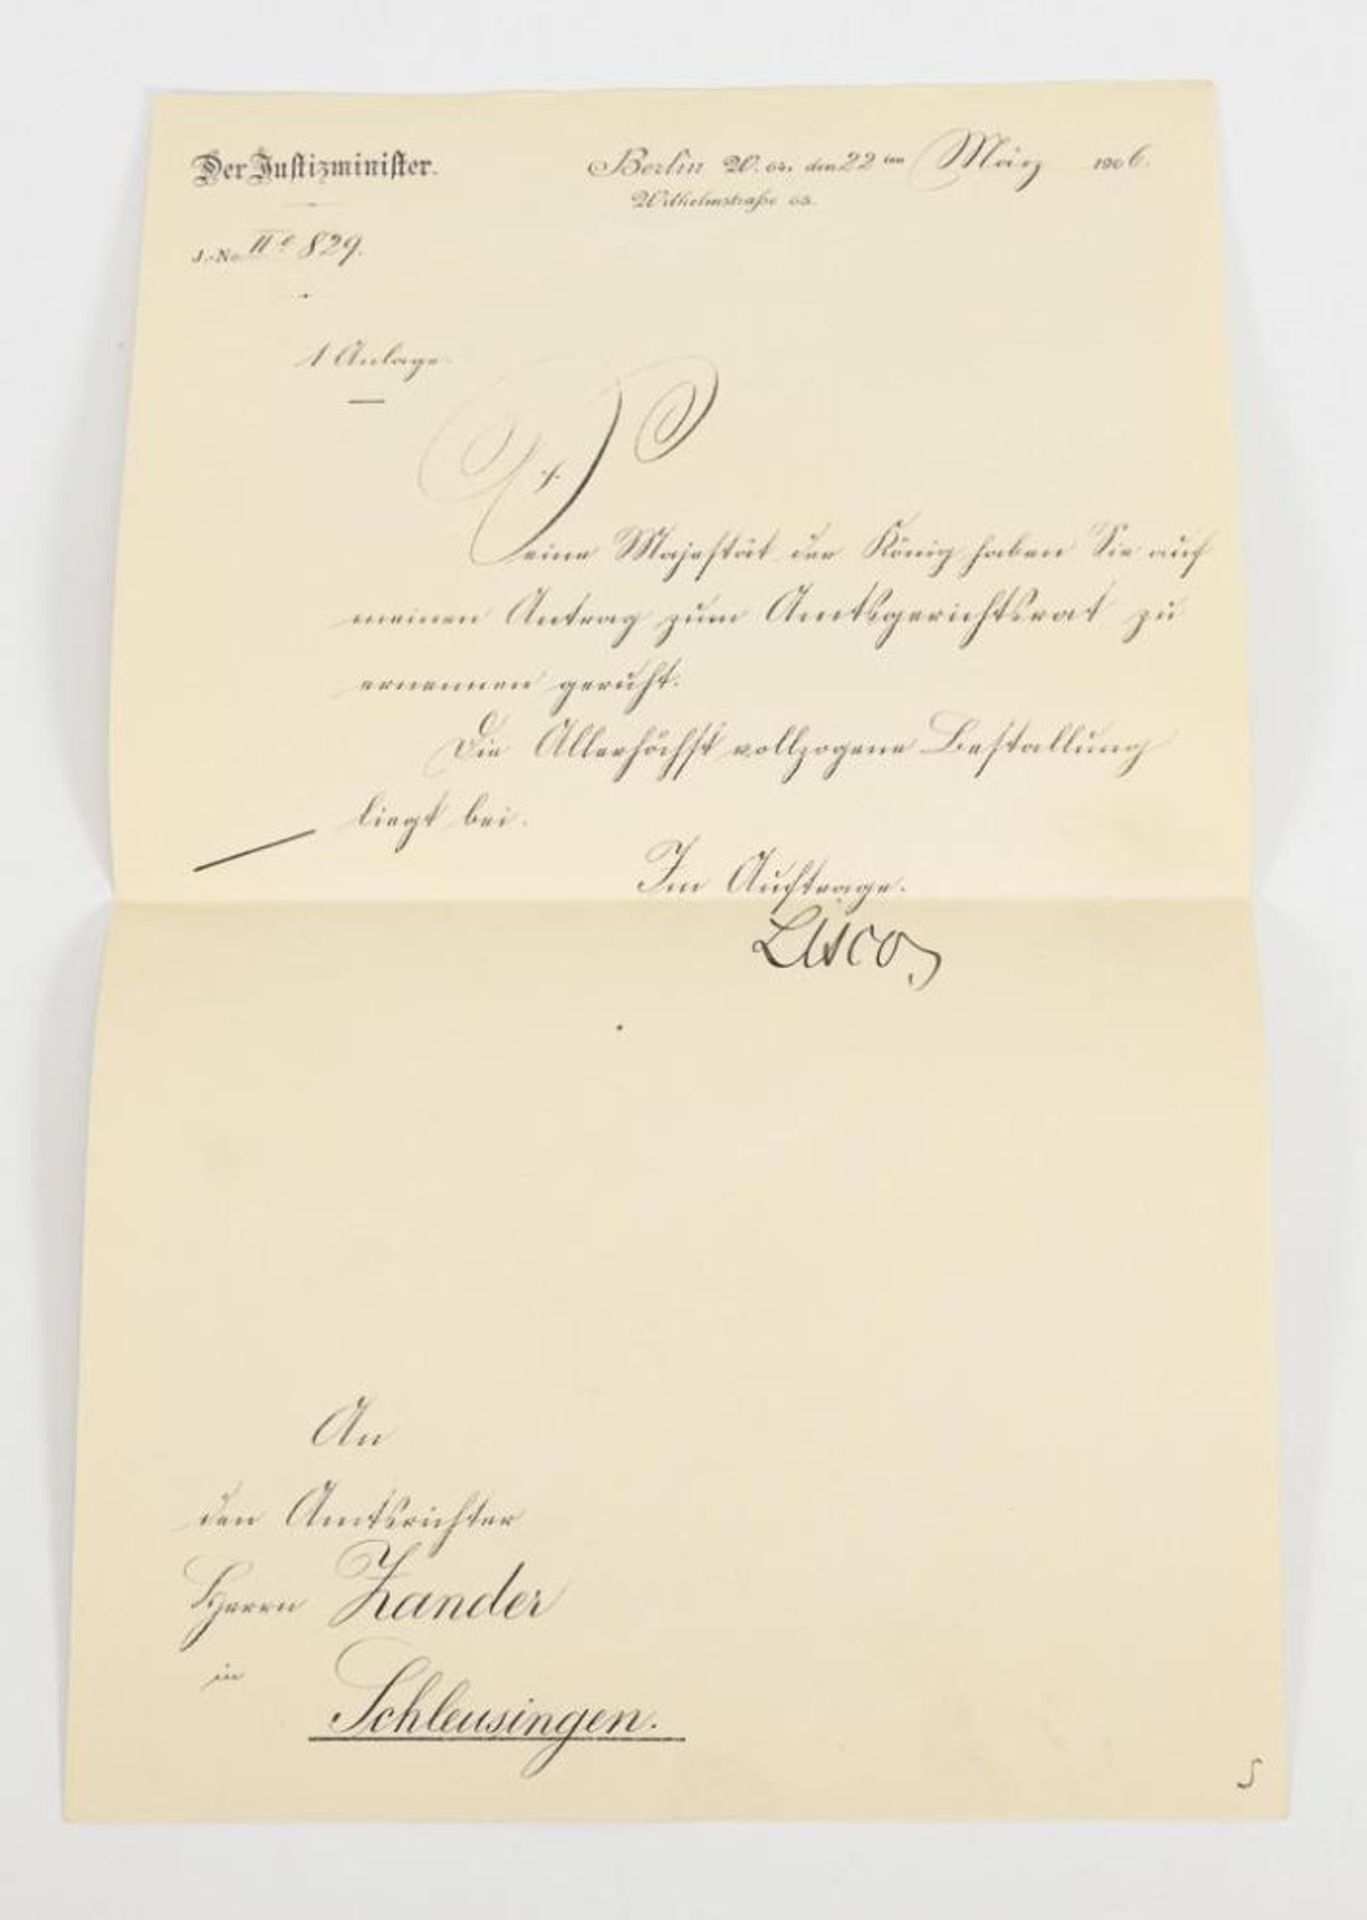 Der Justizminister.
Berlin W. 64. den 22ten März 1906.
Wilhelmstraße 65.
J.-No. II c 829.
1 Anlage.
Seine Majestät der König haben Sie auf
meinen Antrag zum Amtsgerichtsrat zu
ernennen geruht.
Die Allerhöchst vollzogene Bestallung
liegt bei.
Im Auftrage.
Lisco
An
den Amtsrichter
Herrn Zander
in
Schleusingen.